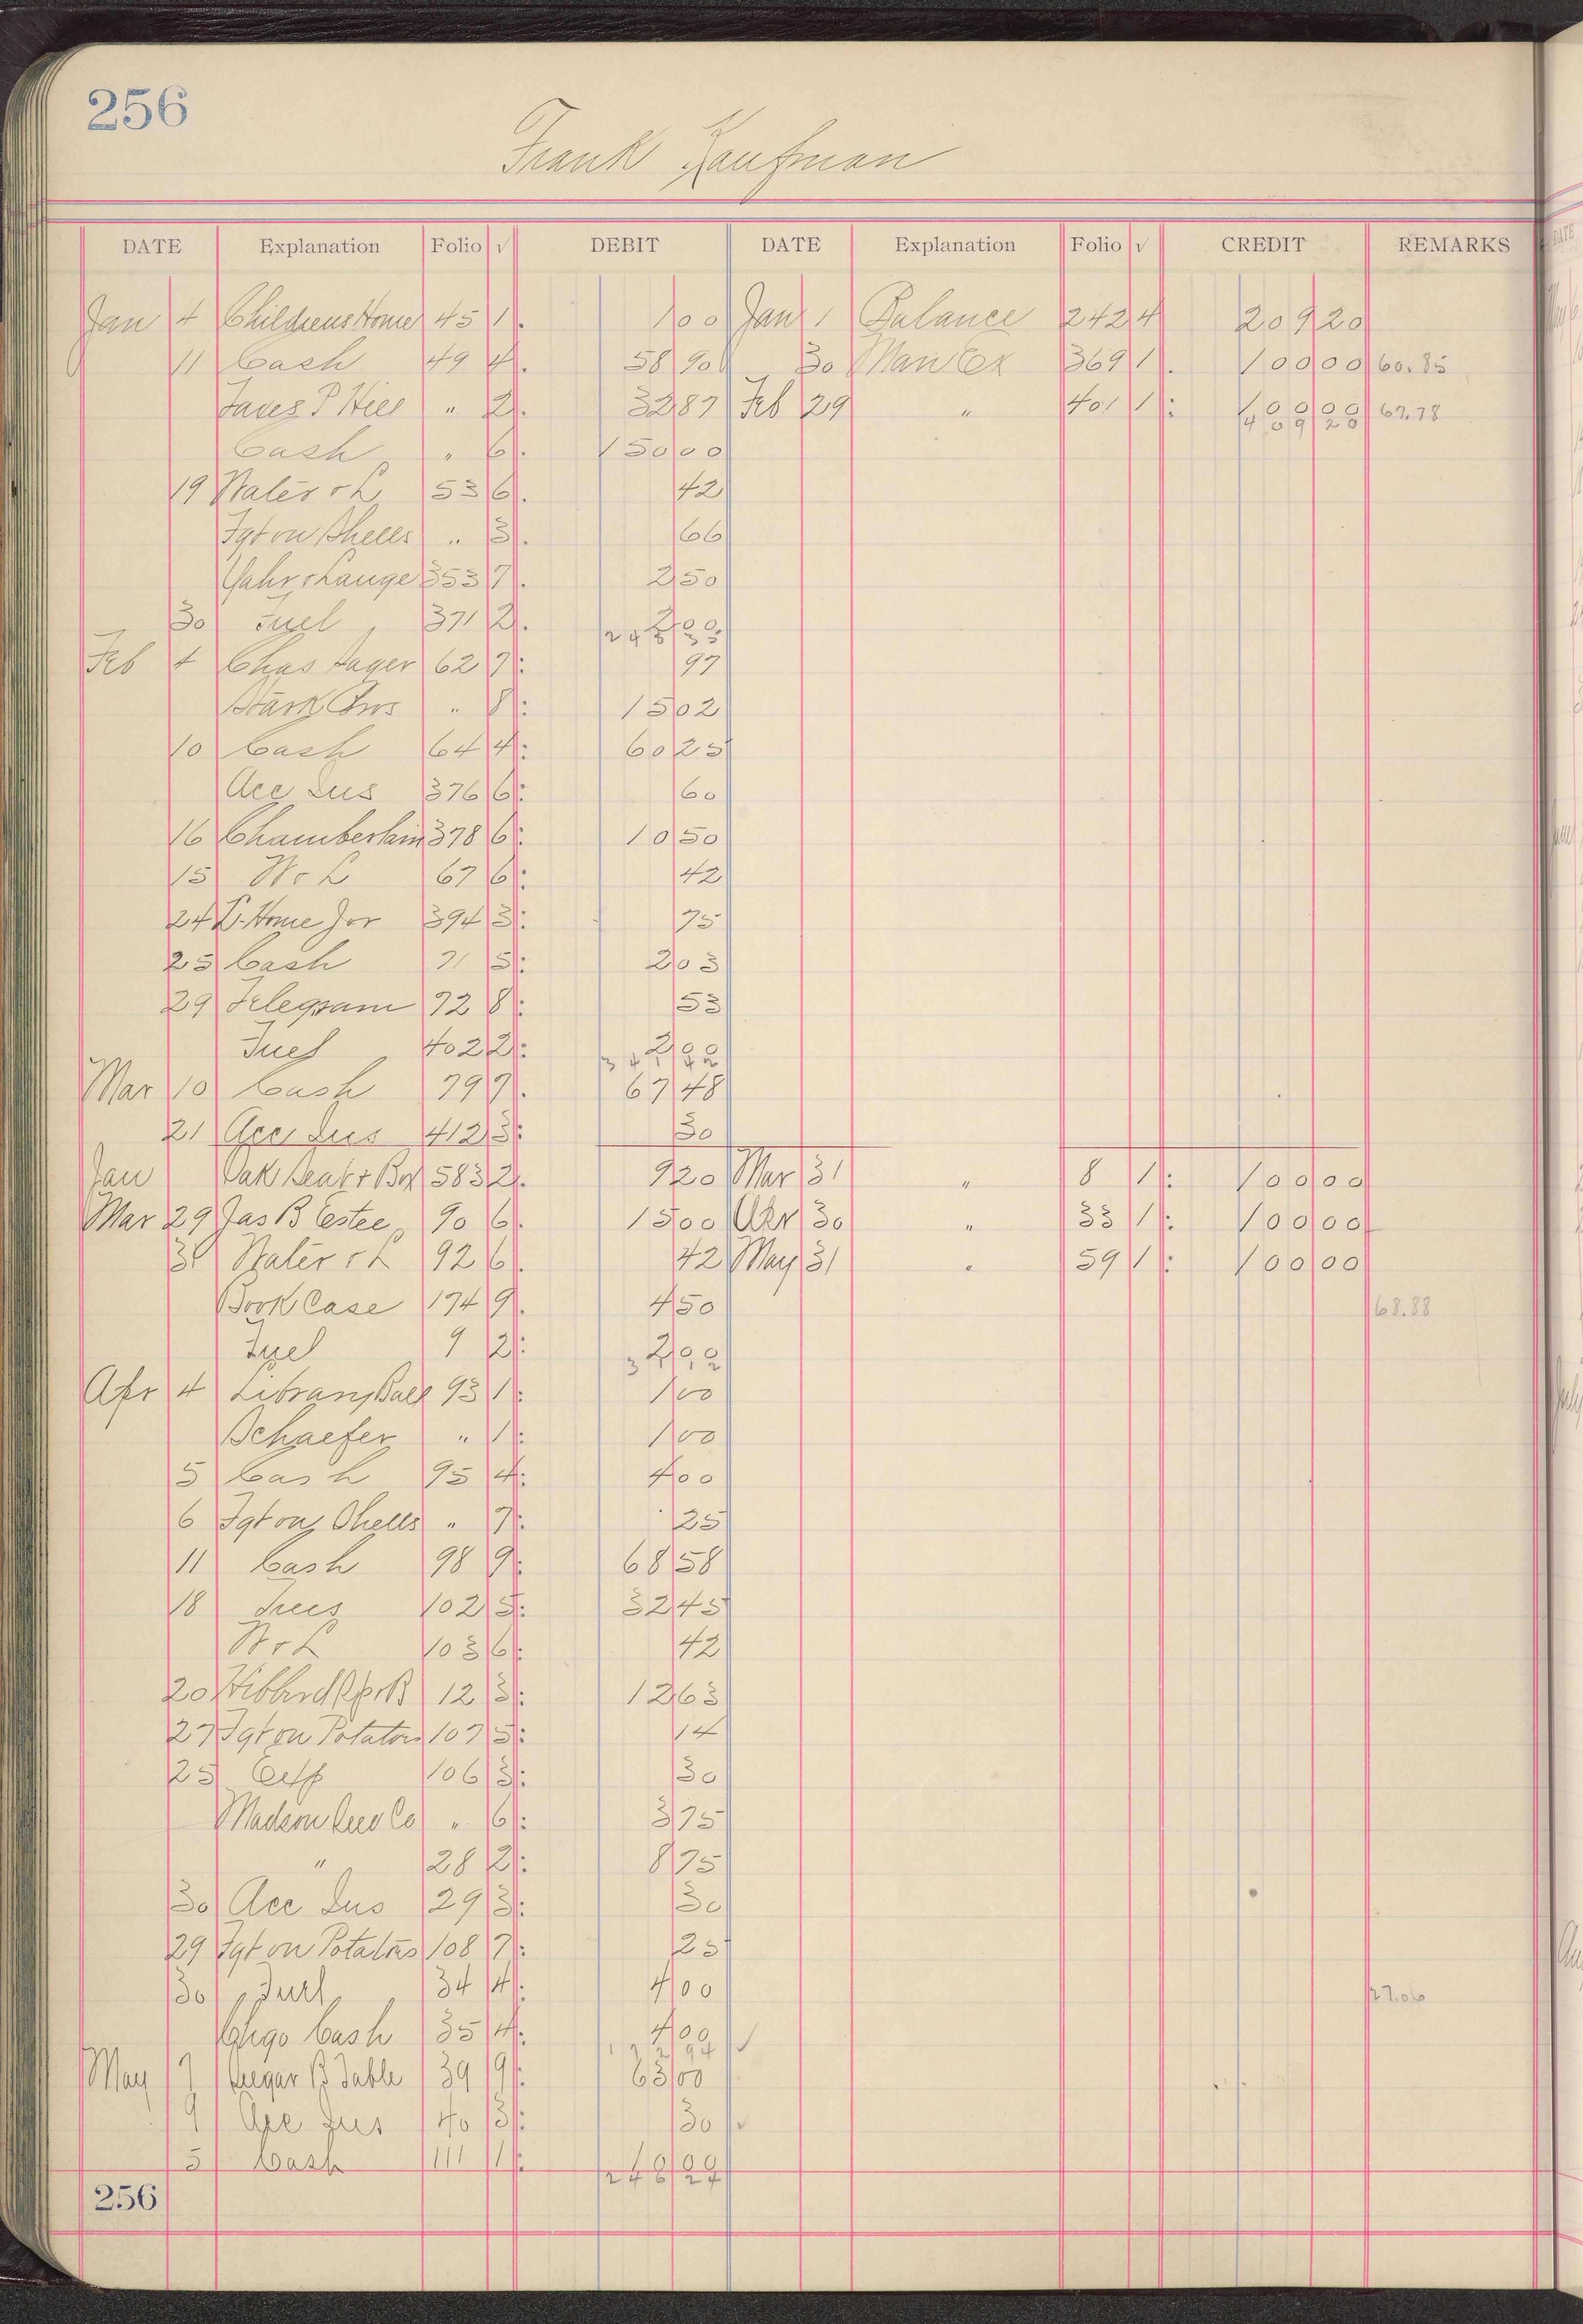 256
Frank Kaufman
DATE Explanation Folio √ DEBIT DATE Explanation Folio √ CREDIT REMARKS
Jan 4 Childrens Home 45 1 1 00 Jan 1 Balance 242 4 209 20
11 Cash 49 4 58 90 30 Man Ex 369 1 100 00 60.85
P Hill " 2 32 87 Feb 29 " 401 1 100 00 67.78
409 20
Cash " 6 150 00
19 Water & L 53 6 42
Fgt on Shells " 3 66
Yahr & Lange 353 7 2 50
30 Fuel 371 2 2 00
Feb 4 Chas 62 7 97
Stark Bros " 8 15 02
10 Cash 64 4 60 25
Acc Dus 376 6 60
16 Chamberlain 378 6 10 50
15 W & L 67 6 42
24 L. Home Jor 394 3 75
25 Cash 71 5 2 03
29 Telegram 72 8 53
Fuel 402 2 2 00
Mar 10 Cash 79 7 67 48
21 Acc Dus 412 3 30
Jan Oak Seat & Box 583 2 9 20 Mar 31 " 8 1 100 00
Mar 29 Jas B Estee 90 6 15 00 Apr 30 " 33 1 100 00
31 Water & L 92 6 42 May 31 " 59 1 100 00
Book Case 174 9 4 50 68.88
Fuel 9 2 2 00
Apr 4 Library Ball 93 1 1 00
Schaefer " 1 1 00
5 Cash 95 4 4 00
6 Fgt on Shells " 7 25
11 Cash 98 9 68 58
18 Trees 102 5 32 45
W & L 103 6 42
20 12 3 12 63
27 Fgt on Potatoes 107 5 14
25 106 3 30
Co " 6 3 75
" 28 2 8 75
30 Acc Dus 29 3 30
29 Fgt on Potatoes 108 7 25
30 Fuel 34 4 4 00 27.06
Chgo Cash 35 4 4 00 √
May 7 B Table 39 9 63 00
9 Acc Dus 40 3 30 √
5 Cash 111 1
256